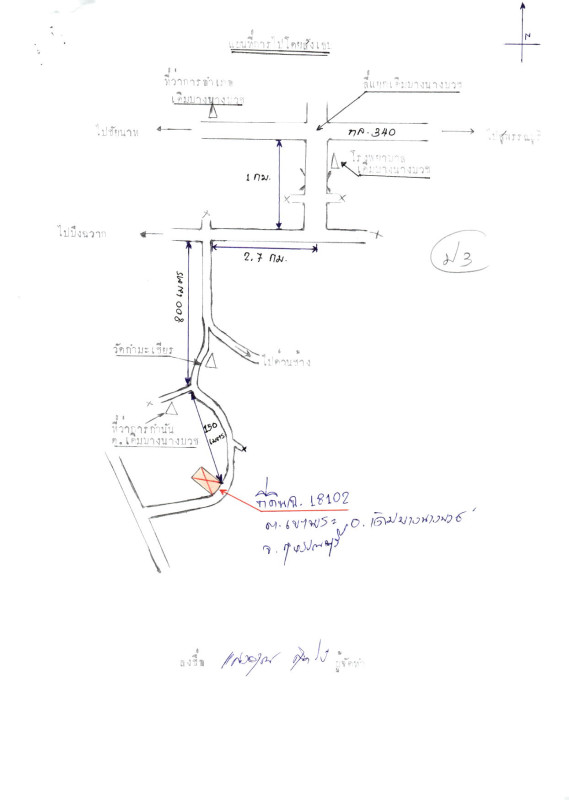 N
แผนที่การไปโดยสังเขป
ที่ว่าการอำเภอ
เดิมบางนางบวช
สี่แยกเดิมบางนางบวช
ไปชัยนาท
ทล. 340
ไปสุพรรณบุรี
โรงพยาบาล
เดิมบางนางบวช
1 กม.
ไปบึงฉวาก
2.7 กม.
ป 3
800 เมตร
วัดกำมะเชียร
ไปด่านช้าง
150
เมตร
ที่ว่าการกำนัน
ต. เดิมบางนางบวช
ที่ดิน 18102
ต. เขาพระ อ. เดิมบางนางบวช
จ. สุพรรณบุรี
ลงชื่อ ผู้จัดทำ